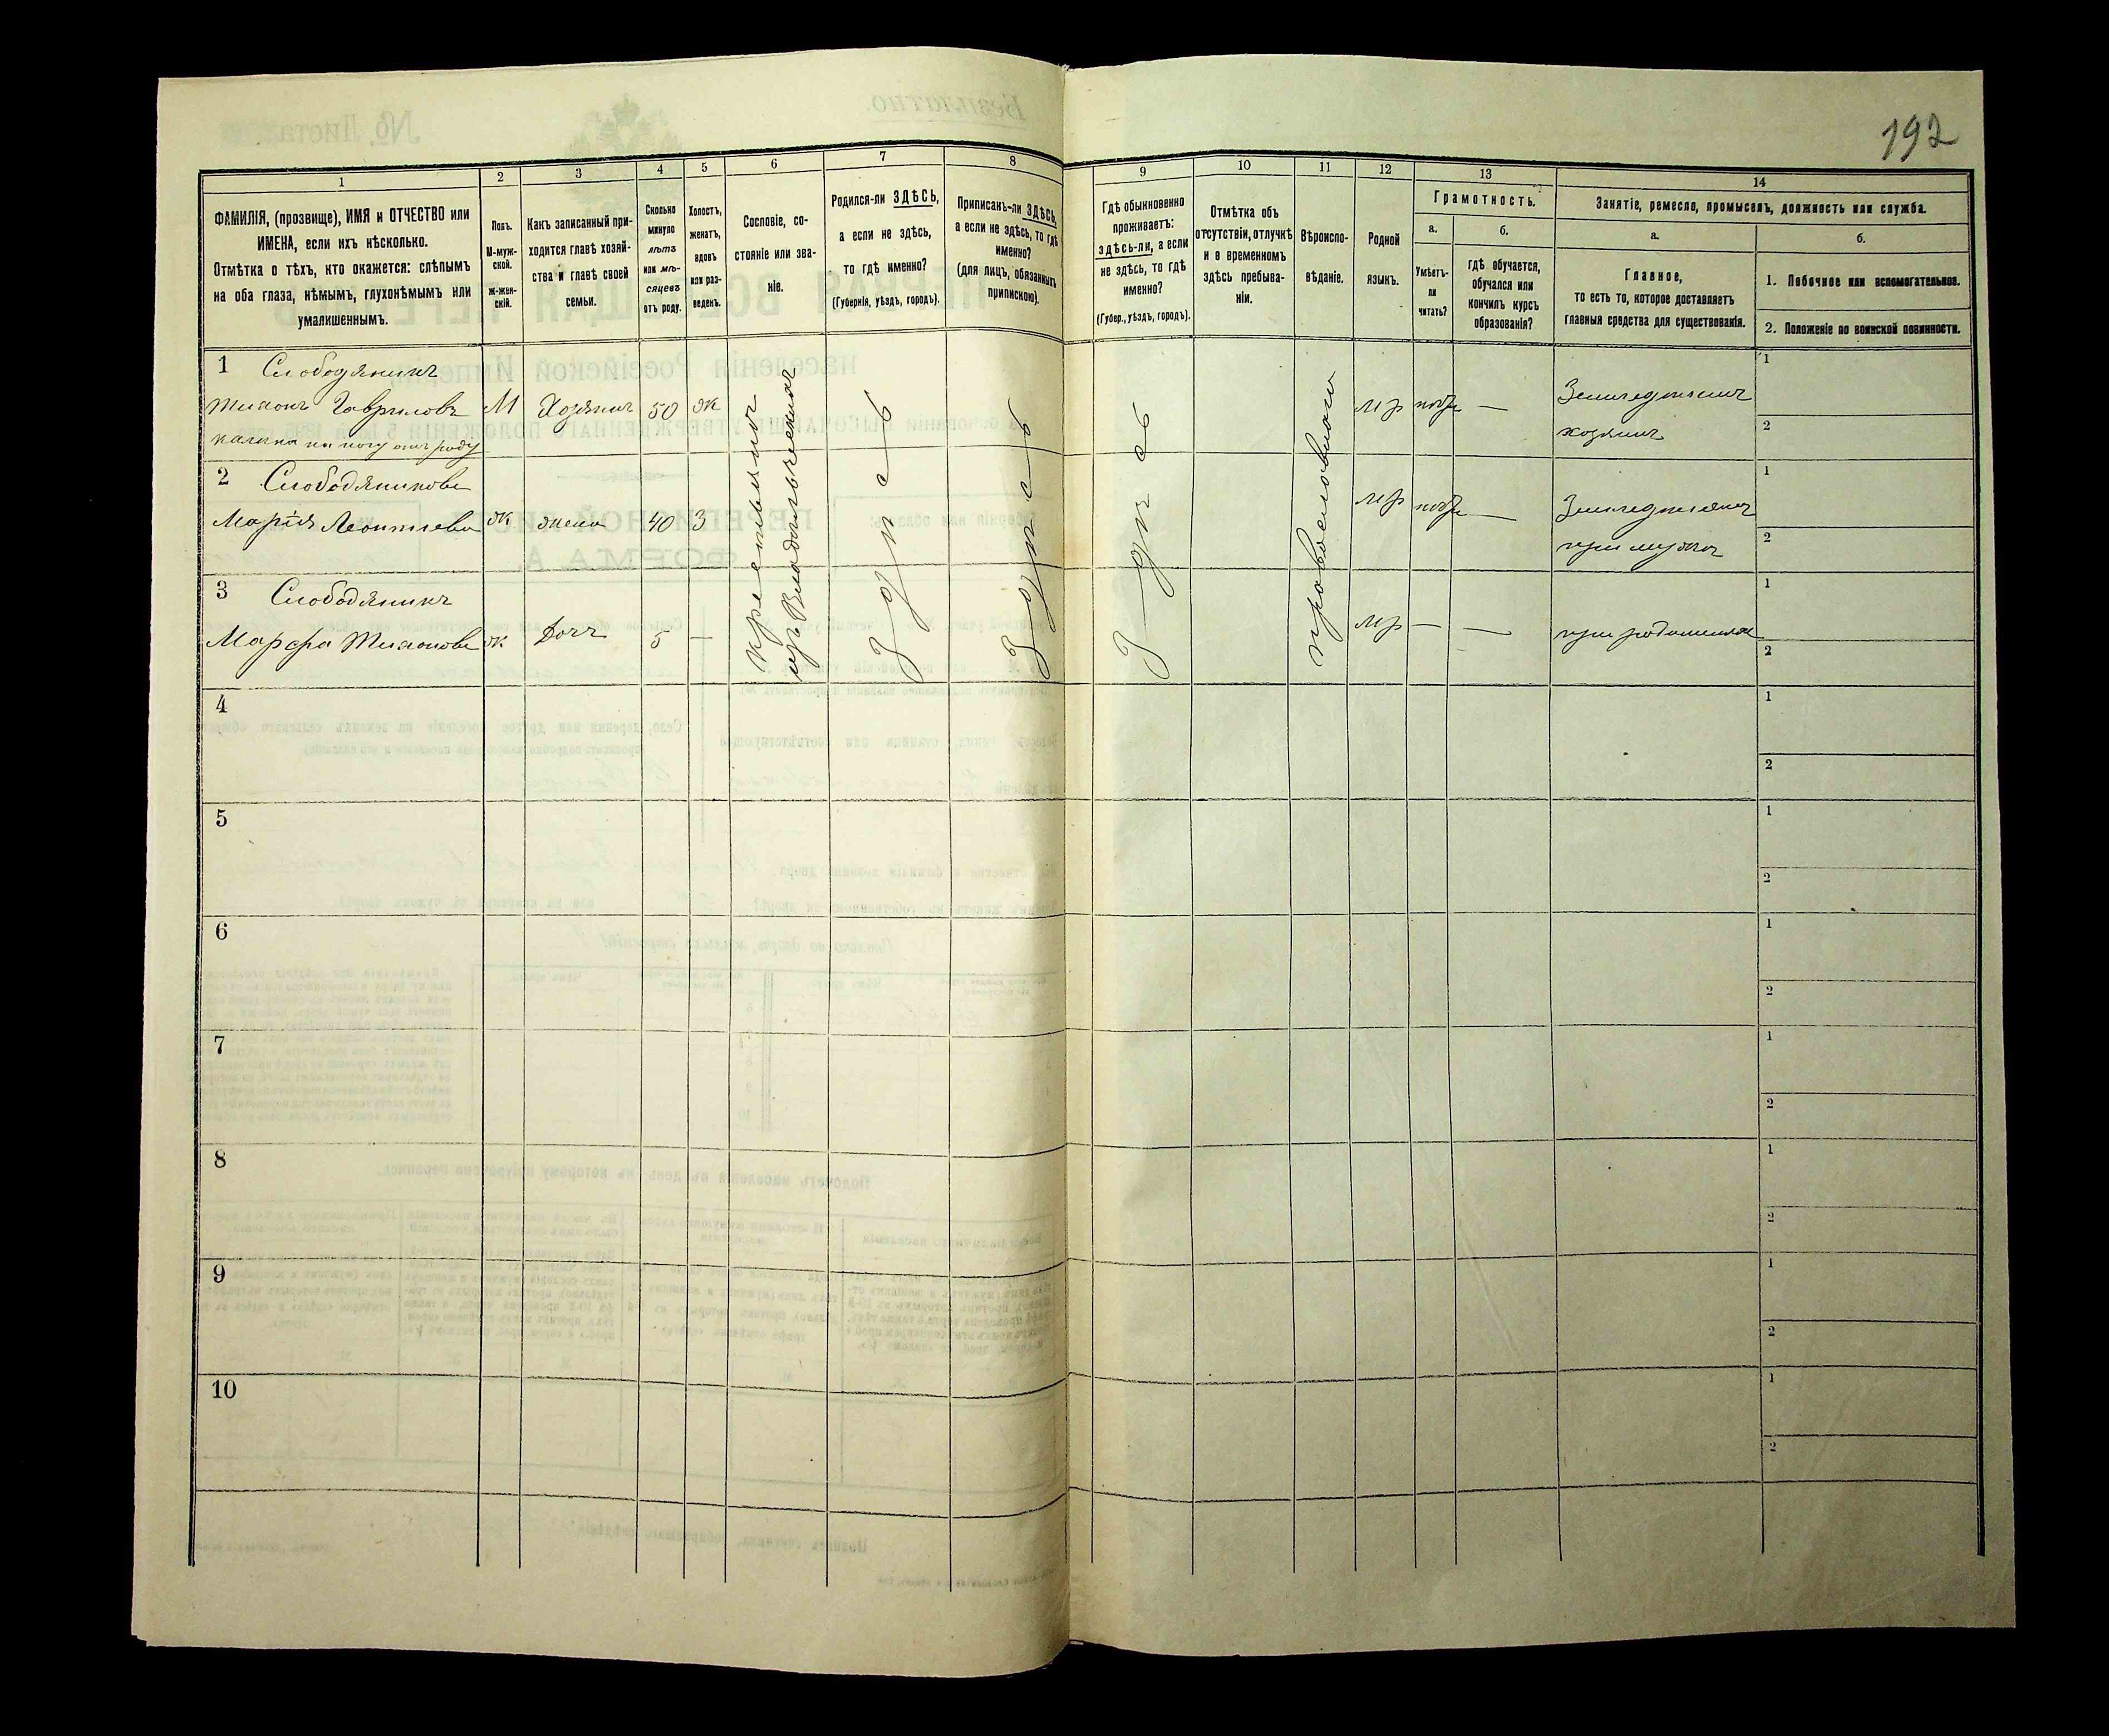 192
1
2
3
4
5
6
7
8
9
10
11
12
13
14
ФАМИЛІЯ, (прозвище), ИМЯ и ОТЧЕСТВО или
ИМЕНА, если ихъ нѣсколько.
Отмѣтка о тѣхъ, кто окажется: слѣпымъ
на оба глаза, нѣмымъ, глухонѣмымъ или
умалишеннымъ.
Полъ.
М-муж-
ской.
Ж-жен-
скій.
Какъ записанный при-
ходится главѣ хозяй-
ства и главѣ своей
семьи.
Сколько
минуло
лѣтъ
или мѣ-
сяцевъ
отъ роду.
Холостъ,
женатъ,
вдовъ
или раз-
веденъ.
Сословіе, со-
стояніе или зва-
ніе.
Родился-ли ЗДѢСЬ,
а если не здѣсь,
то гдѣ именно?
(Губернія, уѣздъ, городъ).
Приписанъ-ли ЗДѢСЬ,
а если не здѣсь, то гдѣ
именно?
(для лицъ, обязанныхъ
припискою).
Гдѣ обыкновенно
проживаетъ:
здѣсь-ли, а если
не здѣсь, то гдѣ
именно?
(Губер., уѣздъ, городъ).
Отмѣтка объ
отсутствіи, отлучкѣ
и о временномъ
здѣсь пребыва-
ніи.
Вѣроиспо-
вѣданіе.
Родной
языкъ.
Грамотность.
а.
Умѣетъ-
ли
читать?
б.
гдѣ обучается,
обучался или
кончилъ курсъ
образованія?
Занятіе, ремесло, промыселъ, должность или служба.
а.
Главное,
то есть то, которое доставляетъ
главныя средства для существованія.
б.
1. Побочное или вспомогательное.
2. Положеніе по воинской повинности.
1 Слободяникъ
Тихонъ Гавриловъ М Хозяинъ 50 ж мр — Земледѣлецъ
хозяинъ
отъ роду
2 Слободяникова
Марія Леонтіева ж жена 40 З мр — при мужѣ
3 Слободяникъ
Марфа Тихонова ж Дочь 5 — мр — — при родителяхъ
Здѣсь
Здѣсь
Здѣсь
4
5
6
7
8
9
10
1
2
1
2
1
2
1
2
1
2
1
2
1
2
1
2
1
2
1
2